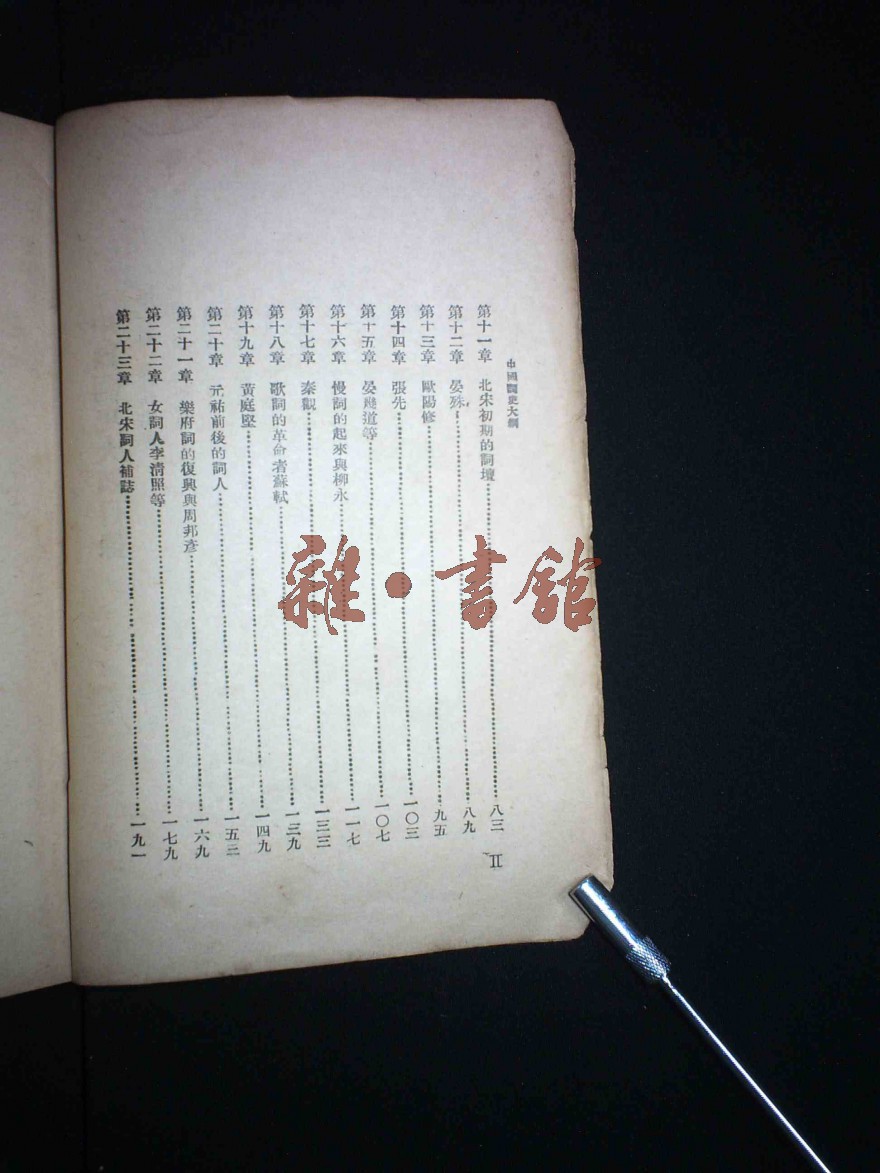 中國詞史大綱
第十一章 北宋初期的詞壇……八三
第十二章 晏殊……八九
第十三章 歐陽修……九五
第十四章 張先……一〇三
第十五章 晏幾道等……一〇七
第十六章 慢詞的起來與柳永……一一七
第十七章 秦觀……一三三
第十八章 歌詞的革命者蘇軾……一三九
第十九章 黃庭堅……一四九
第二十章 元祐前後的詞人……一五三
第二十一章 樂府詞的復興與周邦彥……一六九
第二十二章 女詞人李清照等……一七九
第二十三章 北宋詞人補誌……一九一
II
雜·書館